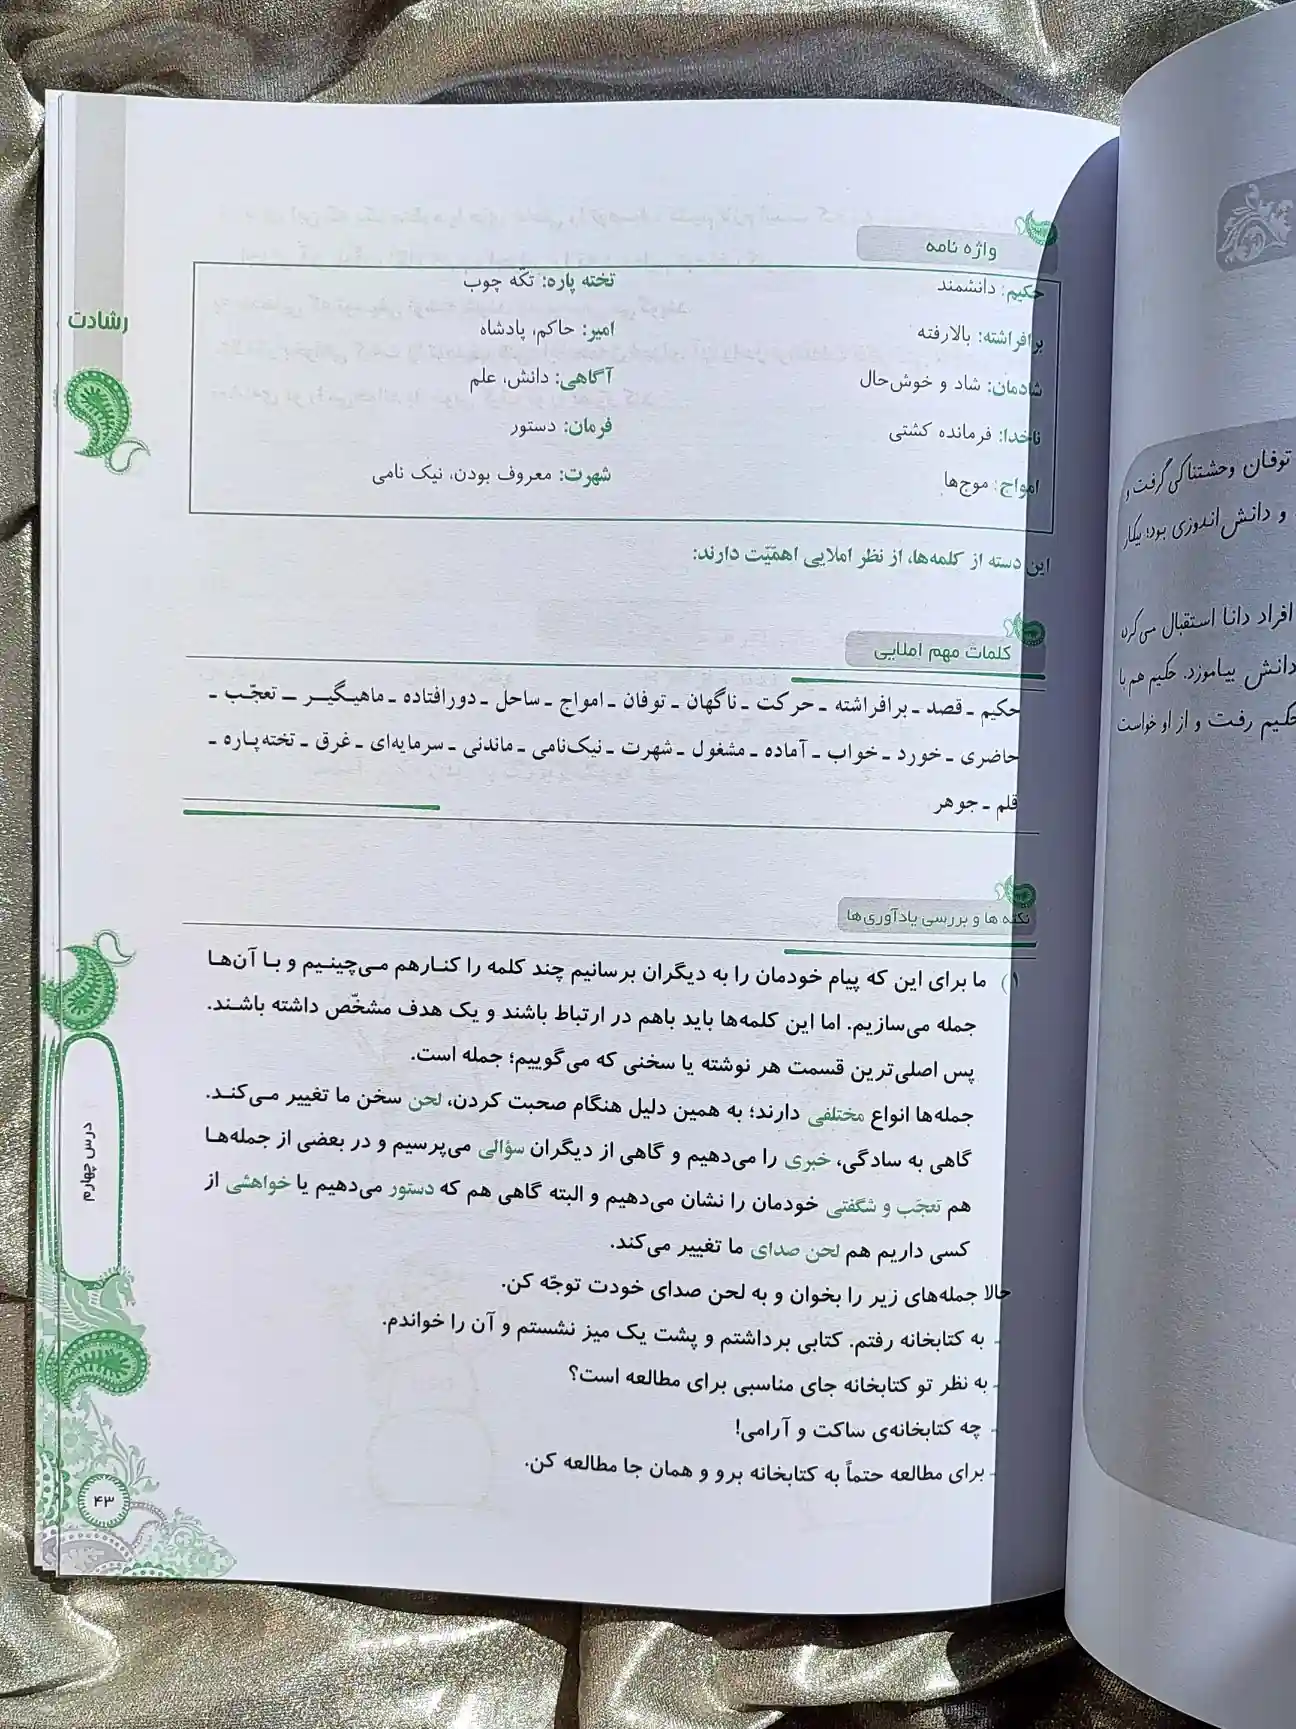 رشادت
واژه نامه
حکیم: دانشمند
برافراشته: بالارفته
شادمان: شاد و خوش‌حال
ناخدا: فرمانده کشتی
امواج: موج‌ها
تخته پاره: تکّه چوب
امیر: حاکم، پادشاه
آگاهی: دانش، علم
فرمان: دستور
شهرت: معروف بودن، نیک نامی
این دسته از کلمه‌ها، از نظر املایی اهمّیّت دارند:
کلمات مهم املایی
حکیم ـ قصد ـ برافراشته ـ حرکت ـ ناگهان ـ توفان ـ امواج ـ ساحل ـ دورافتاده ـ ماهیگیر ـ تعجّب ـ
حاضری ـ خورد ـ خواب ـ آماده ـ مشغول ـ شهرت ـ نیک‌نامی ـ ماندنی ـ سرمایه‌ای ـ غرق ـ تخته‌پاره ـ
قلم ـ جوهر
نکته ها و بررسی یادآوری‌ها
۱) ما برای این که پیام خودمان را به دیگران برسانیم چند کلمه را کنارهم می‌چینیم و با آن‌ها
جمله می‌سازیم. اما این کلمه‌ها باید باهم در ارتباط باشند و یک هدف مشخّص داشته باشند.
پس اصلی‌ترین قسمت هر نوشته یا سخنی که می‌گوییم؛ جمله است.
جمله‌ها انواع مختلفی دارند؛ به همین دلیل هنگام صحبت کردن، لحن سخن ما تغییر می‌کند.
گاهی به سادگی، خبری را می‌دهیم و گاهی از دیگران سؤالی می‌پرسیم و در بعضی از جمله‌ها
هم تعجّب و شگفتی خودمان را نشان می‌دهیم و البته گاهی هم که دستور می‌دهیم یا خواهشی از
کسی داریم هم لحن صدای ما تغییر می‌کند.
حالا جمله‌های زیر را بخوان و به لحن صدای خودت توجّه کن.
ـ به کتابخانه رفتم. کتابی برداشتم و پشت یک میز نشستم و آن را خواندم.
ـ به نظر تو کتابخانه جای مناسبی برای مطالعه است؟
ـ چه کتابخانه‌ی ساکت و آرامی!
ـ برای مطالعه حتماً به کتابخانه برو و همان جا مطالعه کن.
درس چهارم
۴۳
توفان وحشتناکی گرفت و
و دانش‌اندوزی بود؛ بیکار
افراد دانا استقبال می‌کرد
دانش بیاموزد. حکیم هم با
حکیم رفت و از او خواست